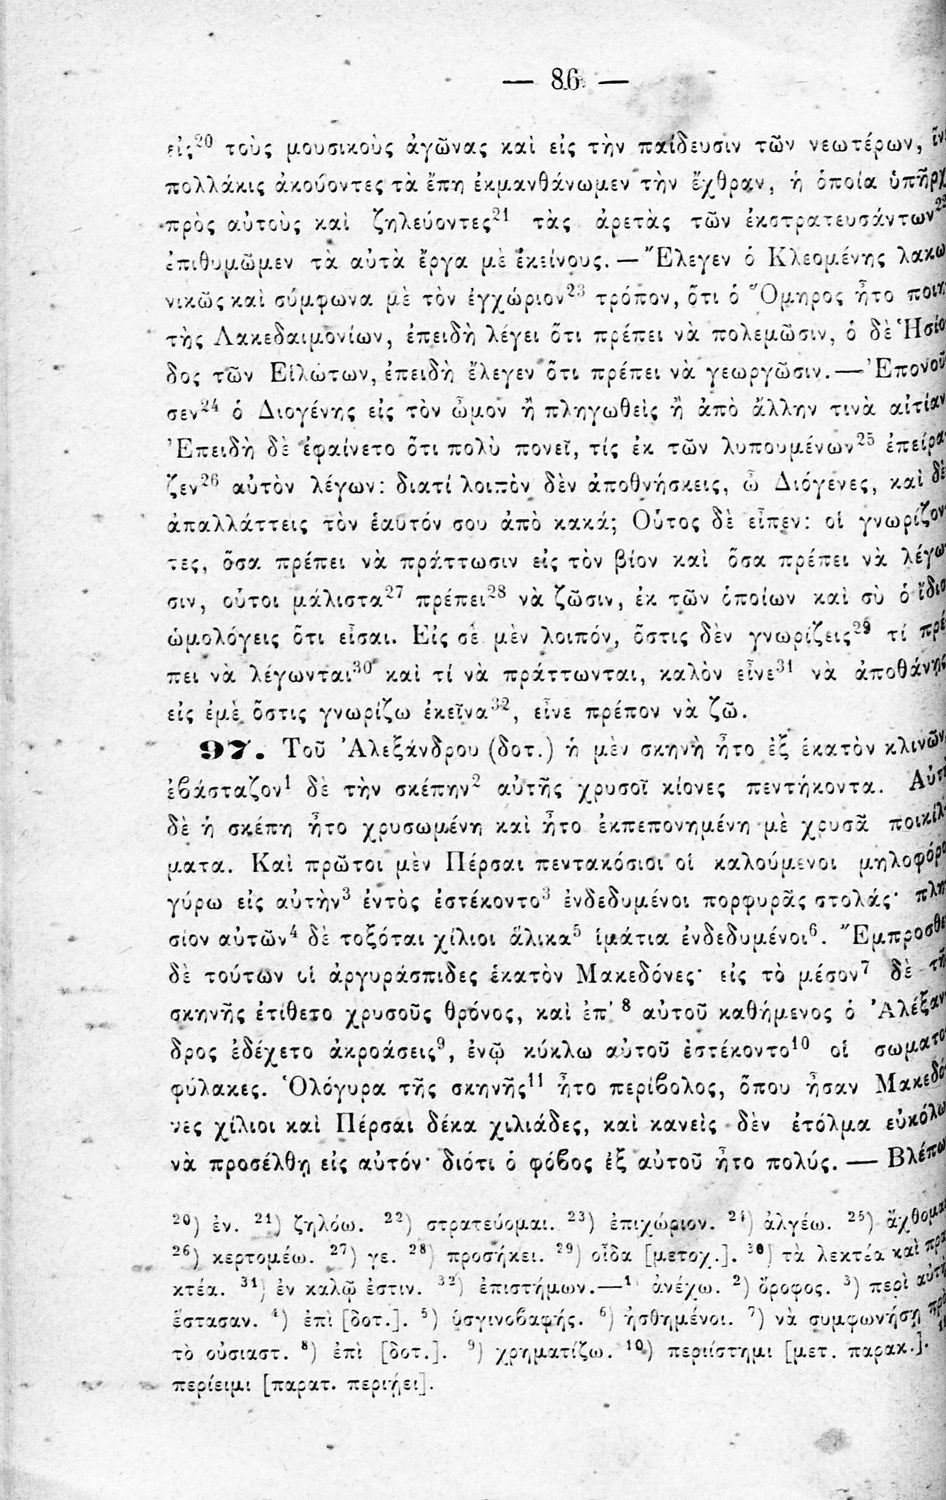 — 86 —
εἰς²⁰ τοὺς μουσικοὺς ἀγῶνας καὶ εἰς τὴν παίδευσιν τῶν νεωτέρων, ἵν
πολλάκις ἀκούοντες τὰ ἔπη ἐκμανθάνωμεν τὴν ἔχθραν, ἡ ὁποία ὑπῆρχ
πρὸς αὐτοὺς καὶ ζηλεύοντες²¹ τὰς ἀρετὰς τῶν ἐκστρατευσάντων²²
ἐπιθυμῶμεν τὰ αὐτὰ ἔργα μὲ ἐκείνους. — Ἔλεγεν ὁ Κλεομένης λακω
νικῶς καὶ σύμφωνα μὲ τὸν ἐγχώριον²³ τρόπον, ὅτι ὁ Ὅμηρος ἦτο ποιη
τὴς Λακεδαιμονίων, ἐπειδὴ λέγει ὅτι πρέπει νὰ πολεμῶσιν, ὁ δὲ Ἡσίο
δος τῶν Εἱλώτων, ἐπειδὴ ἔλεγεν ὅτι πρέπει νὰ γεωργῶσιν. — Ἐπονοῦ
σεν²⁴ ὁ Διογένης εἰς τὸν ὦμον ἢ πληγωθεὶς ἢ ἀπὸ ἄλλην τινὰ αἰτίαν
Ἐπειδὴ δὲ ἐφαίνετο ὅτι πολὺ πονεῖ, τίς ἐκ τῶν λυπουμένων²⁵ ἐπείρα
ζεν²⁶ αὐτὸν λέγων: διατί λοιπὸν δὲν ἀποθνήσκεις, ὦ Διόγενες, καὶ δὲ
ἀπαλλάττεις τὸν ἑαυτόν σου ἀπὸ κακά; Οὗτος δὲ εἶπεν: οἱ γνωρίζον
τες, ὅσα πρέπει νὰ πράττωσιν εἰς τὸν βίον καὶ ὅσα πρέπει νὰ λέγω
σιν, οὗτοι μάλιστα²⁷ πρέπει²⁸ νὰ ζῶσιν, ἐκ τῶν ὁποίων καὶ σὺ ὁ ἴδιο
ὡμολόγεις ὅτι εἶσαι. Εἰς σὲ μὲν λοιπόν, ὅστις δὲν γνωρίζεις²⁹ τί πρέ
πει νὰ λέγωνται³⁰ καὶ τί νὰ πράττωνται, καλὸν εἶνε³¹ νὰ ἀποθάνῃς
εἰς ἐμὲ ὅστις γνωρίζω ἐκεῖνα³², εἶνε πρέπον νὰ ζῶ.
97. Τοῦ Ἀλεξάνδρου (δοτ.) ἡ μὲν σκηνὴ ἦτο ἐξ ἑκατὸν κλινῶν
ἐβάσταζον¹ δὲ τὴν σκέπην² αὐτῆς χρυσοῖ κίονες πεντήκοντα. Αὐτὴ
δὲ ἡ σκέπη ἦτο χρυσωμένη καὶ ἦτο ἐκπεπονημένη μὲ χρυσᾶ ποικίλ
ματα. Καὶ πρῶτοι μὲν Πέρσαι πεντακόσιοι οἱ καλούμενοι μηλοφόρο
γύρω εἰς αὐτὴν³ ἐντὸς ἐστέκοντο³ ἐνδεδυμένοι πορφυρᾶς στολάς· πλη
σίον αὐτῶν⁴ δὲ τοξόται χίλιοι ἅλικα⁵ ἱμάτια ἐνδεδυμένοι⁶. Ἔμπροσθε
δὲ τούτων οἱ ἀργυράσπιδες ἑκατὸν Μακεδόνες· εἰς τὸ μέσον⁷ δὲ τῆ
σκηνῆς ἐτίθετο χρυσοῦς θρόνος, καὶ ἐπ’ ⁸ αὐτοῦ καθήμενος ὁ Ἀλέξαν
δρος ἐδέχετο ἀκροάσεις⁹, ἐνῷ κύκλω αὐτοῦ ἐστέκοντο¹⁰ οἱ σωματο
φύλακες. Ὁλόγυρα τῆς σκηνῆς¹¹ ἦτο περίβολος, ὅπου ἦσαν Μακεδό
νες χίλιοι καὶ Πέρσαι δέκα χιλιάδες, καὶ κανεὶς δὲν ἐτόλμα εὐκόλω
νὰ προσέλθῃ εἰς αὐτόν· διότι ὁ φόβος ἐξ αὐτοῦ ἦτο πολύς. — Βλέπω
²⁰) ἐν. ²¹) ζηλόω. ²²) στρατεύομαι. ²³) ἐπιχώριον. ²⁴) ἀλγέω. ²⁵) ἄχθομα
²⁶) κερτομέω. ²⁷) γε. ²⁸) προσήκει. ²⁹) οἶδα [μετοχ.]. ³⁰) τὰ λεκτέα καὶ πρα
κτέα. ³¹) ἐν καλῷ ἐστιν. ³²) ἐπιστήμων. — ¹ ἀνέχω. ²) ὄροφος. ³) περὶ αὐτὴ
ἕστασαν. ⁴) ἐπὶ [δοτ.]. ⁵) ὑσγινοβαφής. ⁶) ἠσθημένοι. ⁷) νὰ συμφωνήσῃ πρὸ
τὸ οὐσιαστ. ⁸) ἐπὶ [δοτ.]. ⁹) χρηματίζω. ¹⁰) περιίστημι [μετ. παρακ.].
περίειμι [παρατ. περιῄει].